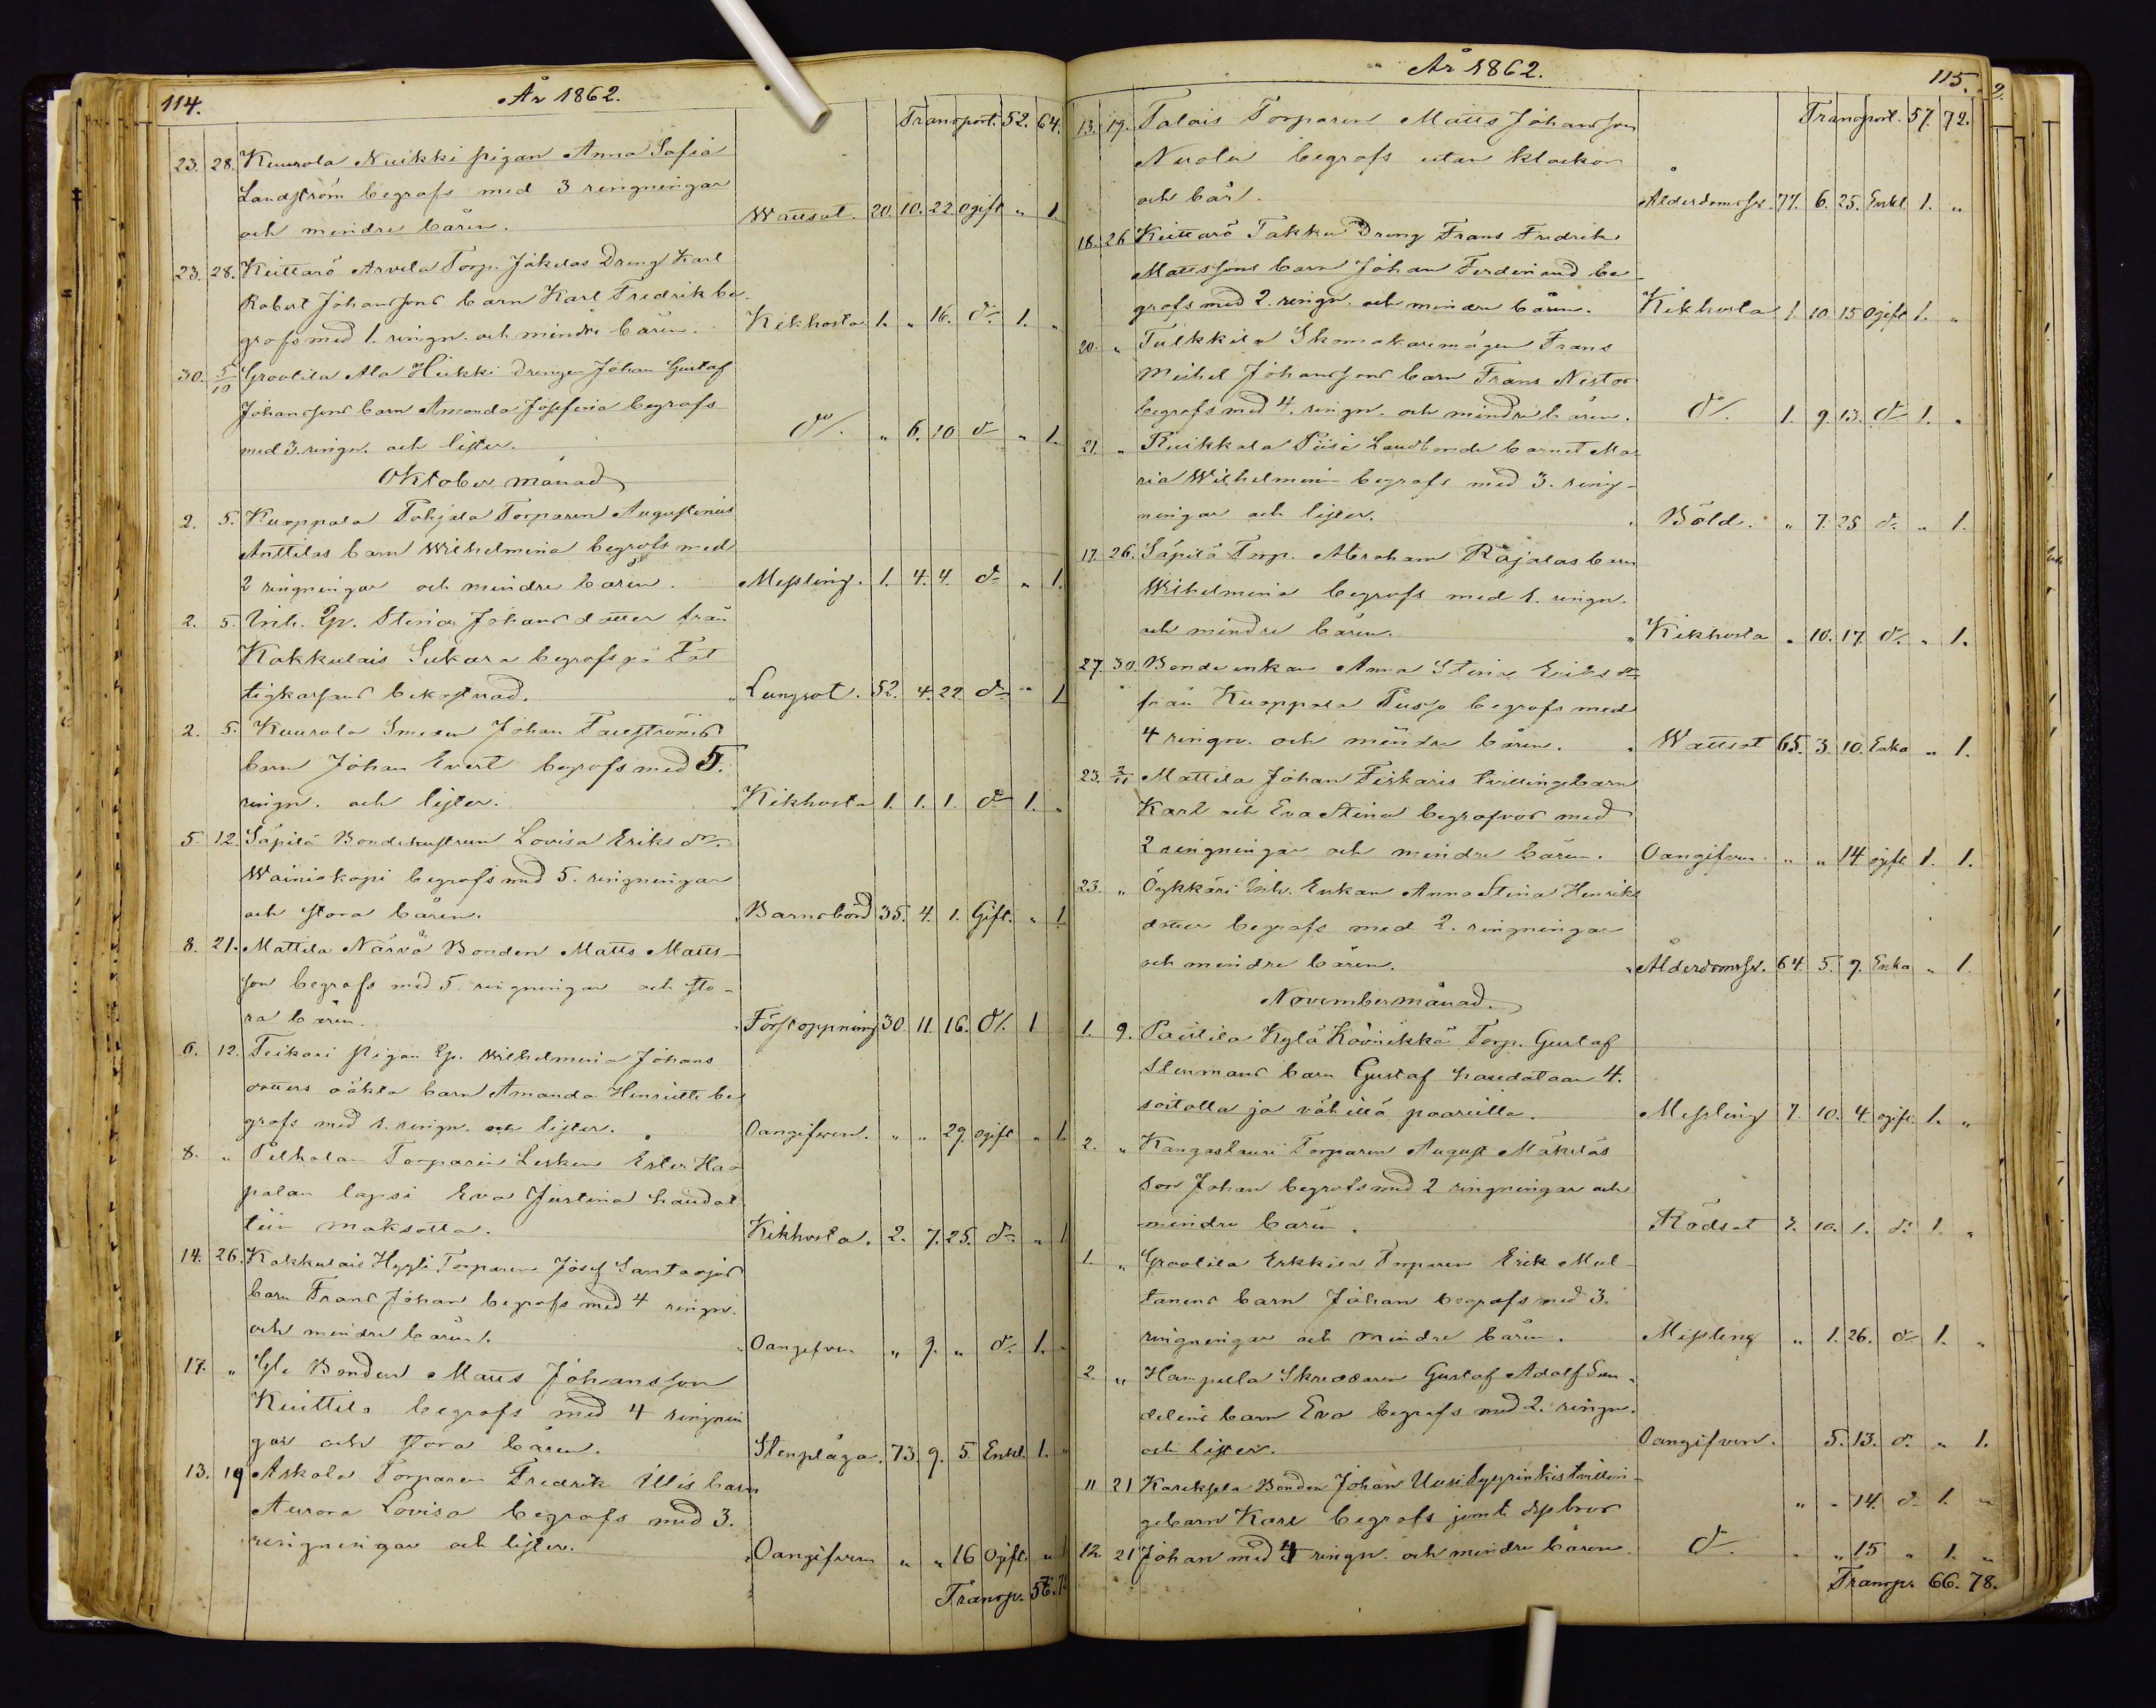 114.
År 1862.
Transport. 52. 64.
23. 28. Kuurola Nuikki pigan Anna Sofia
Landström begrofs med 3 ringningar
och mindre båren. Wattsot. 20. 10. 22. Ogift „ 1.
23. 28. Keittarö Arvela Torp. Jåkelas Dreng Karl
Robert Johanssons barn Karl Fredrik be-
grofs med 1. ringn. och mindre båren. Kikhosta 1. „ 16. d:o 1. „
30. 5/10 Groolila Ala Heikki drengen Johan Gustaf
Johanssons barn Amanda Josefina begrofs
med 3. ringn. och lister. d:o „ 6. 10 d:o „ 1.
Oktober månad
2. 5. Kuoppala Pohjala Torparen Augustinus
Anttilas barn Wilhelmina begrofs med
2 ringningar och mindre båren. Messling. 1. 4. 4. d:o „ 1.
2. 5. Inh. Qv. Stina Johansdotter från
Kakkulais Sukara begrofs på Fat
tigkassans bekostnad. Lungsot. 52. 4. 22. d:o „ 1
2. 5. Kuurola Smeden Johan Fauström's
barn Johan Evert begrofs med 5.
ringn. och lister. Kikhosta 1. 1. 1. d:o 1. „
5. 12. Säpilä Bondehustrun Lovisa Eriks dr.
Wainiokopi begrofs med 5. ringningar
och stora båren. Barnsbörd 35. 4. 1. Gift. „ 1.
8. 21. Mattila Närvä Bonden Matts Matts-
son begrofs med 5. ringningar och sto-
ra båren. Förstoppning 30. 11. 16. d:o 1
6. 12. Teikari pigan Qv. Wilhelmina Johans
dotters oäkta barn Amanda Henriette be
grofs med 1. ringn. och lister. Oangifven. „ „ 29. ogift „ 1.
8. „ Pelholan Torparin Lesken Ester Haa
palan lapsi Eva Justina haudat
tiin maksotta. Kikhosta. 2. 7. 25. d:o „ 1
14. 26. Kakkulais Hyyti Torparen Josef Santaojas
barn Frans Johan begrofs med 4 ringn.
och mindre båren. Oangifven „ 9. „ d:o 1. „
17. „ Gl. Bonden Matts Johansson
Keittilä begrofs med 4 ringnin
gar och stora båren. Stenplåga. 73. 9. 5. Enkl. 1. „
13. 19 Askola Torparen Fredrik Illis barn
Aurora Lovisa begrofs med 3.
ringningar och lister. Oangifven „ „ 16 Ogift. „ 1
Transp. 57. 72
År 1862.
115.
Transport. 57. 72.
13. 19. Talais Torparen Matts Johansson
Nuola begrofs utan klockor
och bår. Ålderdomssv. 77. 6. 25. Enkl. 1. „
18. 26 Keittarö Takku Dreng Frans Fredrik
Mattssons barn Johan Ferdinand be-
grofs med 2. ringn. och mindre båren. Kikhosta 1. 10 15 Ogift 1. „
20. „ Tulkkila Skomakaremågen Frans
Michel Johanssons barn Frans Nestor
begrofs med 4. ringn. och mindre båren. d:o 1. 9. 13. d:o 1. „
21. „ Ruikkala Piisi Landbonde barnet Ma-
ria Wilhelmin begrofs med 3. ring-
ningar och lister. Böld. „ 7. 25 d:o „ 1.
17. 26. Säpilä Torp. Abraham Rajalas barn
Wilhelmina begrofs med 1. ringn.
och mindre båren. Kikhosta „ 10. 17. d:o „ 1.
27. 30. Bonde enkan Anna Stina Eriks dr
från Kuoppala Pusso begrofs med
4 ringn. och mindre båren. Wattsot 65. 3. 10. Enka „ 1.
23. 2/11 Mattila Johan Fiskaris tvillingebarn
Karl och Eva Stina begrofvos med
2 ringningar och mindre båren. Oangifven. „ „ 14. ogift 1. 1.
23. „ Öykkäri Inh. Enkan Anna Stina Henriks
dotter begrofs med 2. ringningar
och mindre båren. Ålderdomssv. 64. 5. 9. Enka „ 1.
November månad.
1. 9. Paitila Kylä Köönikkä Torp. Gustaf
Stenmans barn Gustaf haudataan 4.
soitolla ja vähillä paareilla. Messling 7. 10. 4. ogift. 1. „
2. „ Kangaslauri Torparen August Mäkeläs
son Johan begrofs med 2 ringningar och
mindre båren. Rödsot 3. 10. 1. d:o 1. „
1. „ Groolila Erkkilä Torparen Erik Mul-
tanens barn Johan begrofs med 3.
ringningar och mindre båren. Messling „ 1. 26. d:o 1. „
2. „ Hanpella Skreddaren Gustaf Adolf Sun-
delins barn Eva begrofs med 2. ringn.
och lister. Oangifven. 5. 13. d:o „ 1.
11 21 Kareksela Bonden Johan Uusi Kyyrinkis tvillin-
gebarn Karl begrofs jemte dess bror „ „ 14. d:o 1. „
12 21 Johan med 4 ringn. och mindre båren. d:o „ „ 15 „ 1. „
Transp. 66. 78.